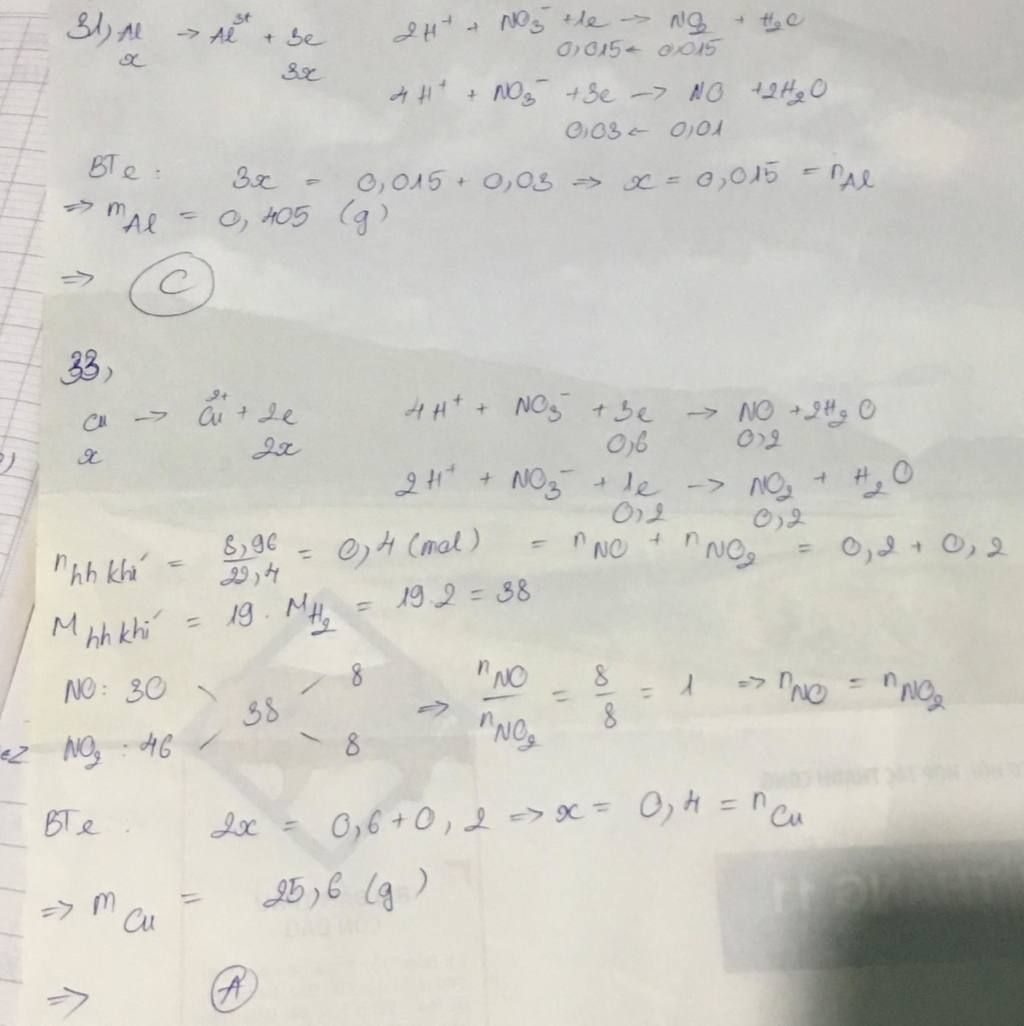 31, Al → Al³⁺ + 3e    2H⁺ + NO₃⁻ + 1e → NO₂ + H₂O
x    3x    0,015 ← 0,015
4H⁺ + NO₃⁻ + 3e → NO + 2H₂O
0,03 ← 0,01
BTe : 3x = 0,015 + 0,03 ⇒ x = 0,015 = nAl
⇒ mAl = 0,405 (g)
⇒ C
33,
Cu → Cu²⁺ + 2e    4H⁺ + NO₃⁻ + 3e → NO + 2H₂O
x    2x    0,6    0,2
2H⁺ + NO₃⁻ + 1e → NO₂ + H₂O
0,2    0,2
nhh khí = 8,96/22,4 = 0,4 (mol) = nNO + nNO₂ = 0,2 + 0,2
Mhh khí = 19 . MH₂ = 19.2 = 38
NO : 30    8
38    ⇒ nNO/nNO₂ = 8/8 = 1 ⇒ nNO = nNO₂
NO₂ : 46    8
BTe . 2x = 0,6 + 0,2 ⇒ x = 0,4 = nCu
⇒ mCu = 25,6 (g)
⇒ A